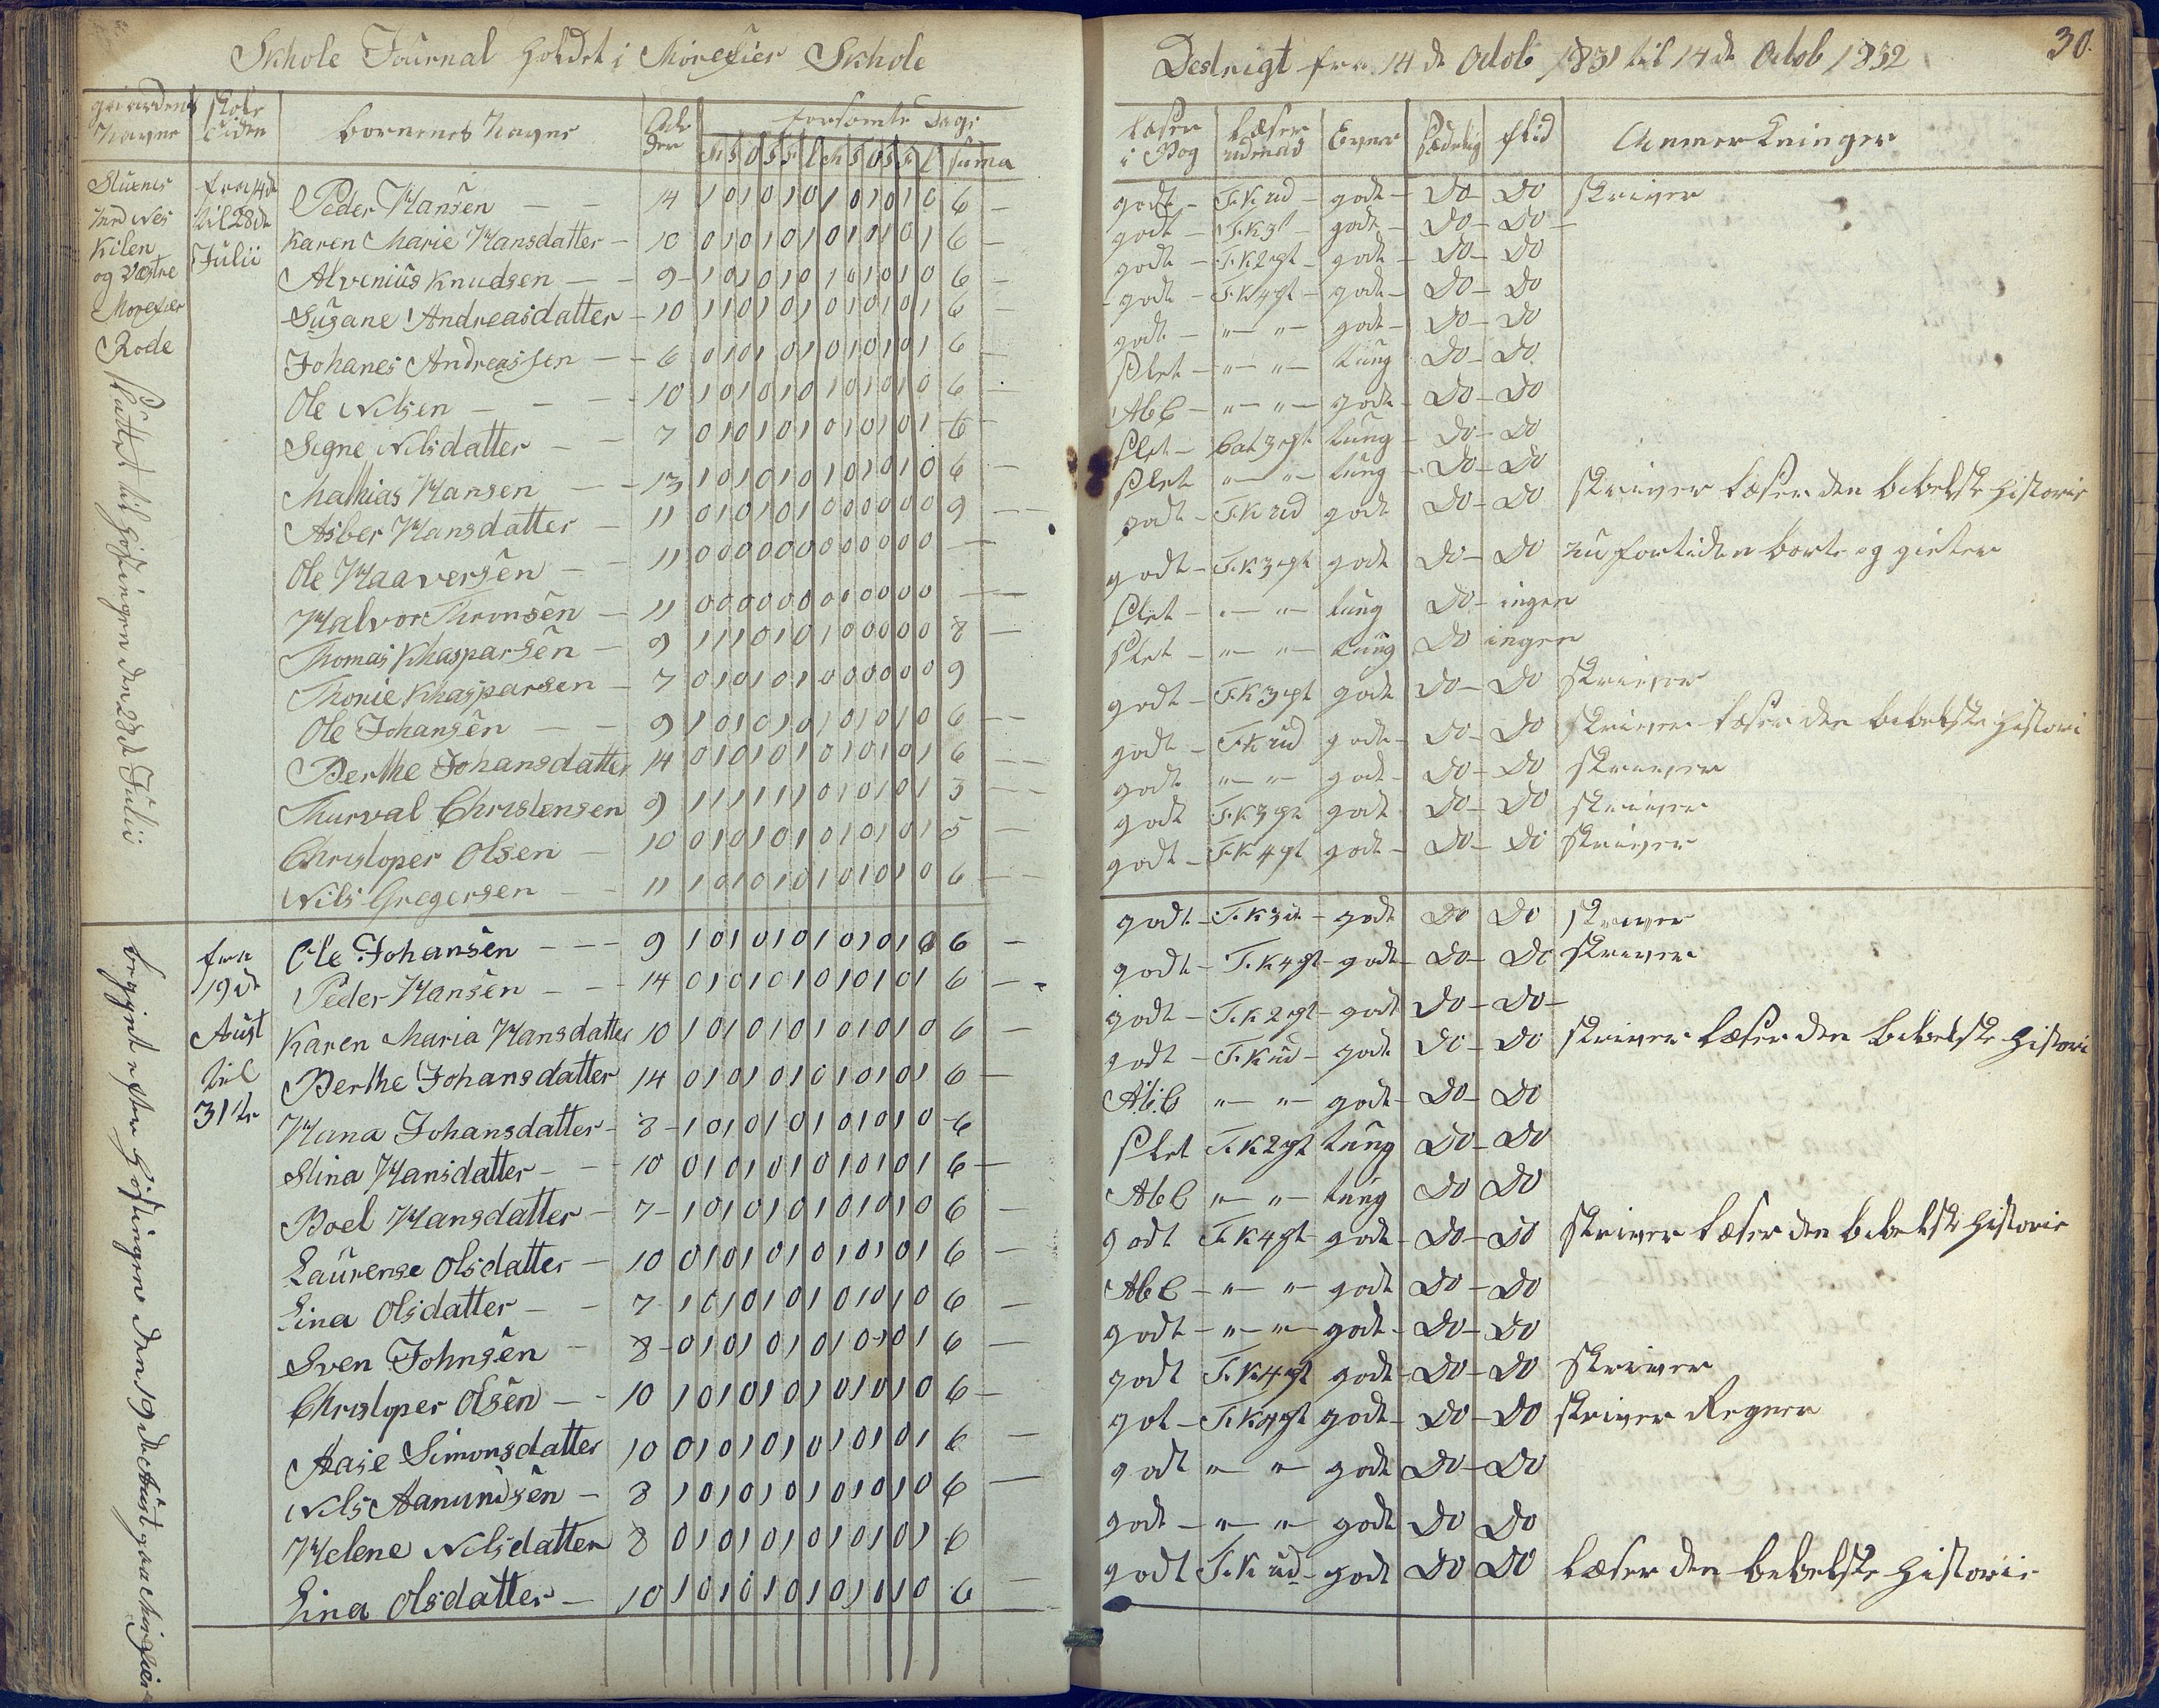 Skhole Journal holdet i Morefier Skhole
gaardens Navne
skole tiden
børnenes Navne
Alderen
forsømte Dage
M T O T F L M T O T F L suma
fra 14de til 28de Julii
Kilen og Vestre Morefier Rode
Peder Hansen 14 1 0 1 0 1 0 1 0 1 0 1 0 6
Karen Marie Hansdatter 10 0 1 0 1 0 1 0 1 0 1 0 1 6
Alvenius Knudsen 9 1 0 1 0 1 0 1 0 1 0 1 0 6
Susane Andreasdatter 10 1 1 0 1 0 1 0 1 0 1 0 1 6
Johanes Andreassen 6 0 1 0 1 0 1 0 1 0 1 0 1 6
Ole Nilsen 10 1 0 1 0 1 0 1 0 1 0 1 0 6
Segne Nilsdatter 7 0 1 0 1 0 1 0 1 0 1 0 1 6
Mathias Hansen 13 1 0 1 0 1 0 1 0 1 0 1 0 6
Asber Hansdatter 11 0 1 0 1 0 1 0 0 0 0 0 0 9
Ole Haaversen 11 0 0 0 0 0 0 0 0 0 0 0 0
Halvor Thronsen 11 0 0 0 0 0 0 0 0 0 0 0 0
Thomas Khasparsen 9 1 1 1 0 1 0 1 0 0 0 0 0 8
Thonie Khasparsen 7 0 1 0 1 0 1 0 0 0 0 0 0 9
Ole Johansen 9 1 0 1 0 1 0 1 0 1 0 1 0 6
Berthe Johansdatter 14 0 1 0 1 0 1 0 1 0 1 0 1 6
Thurval Christensen 9 1 1 1 1 1 1 0 1 0 1 0 1 3
Christoper Olsen 10 0 1 0 1 0 1 0 1 0 1 0 1 5
Nils Gregersen 11 1 0 1 0 1 0 1 0 1 0 1 0 6
sluttet til høstingen den 28de Julii
fra 19de Aust til 31te
Ole Johansen 9 1 0 1 0 1 0 1 0 1 0 1 0 6
Peder Hansen 14 0 1 0 1 0 1 0 1 0 1 0 1 6
Karen Maria Hansdatter 10 1 0 1 0 1 0 1 0 1 0 1 0 6
Berthe Johansdatter 14 0 1 0 1 0 1 0 1 0 1 0 1 6
Hana Johansdatter 8 1 0 1 0 1 0 1 0 1 0 1 0 6
Stina Hansdatter 10 0 1 0 1 0 1 0 1 0 1 0 1 6
Boel Hansdatter 7 1 0 1 0 1 0 1 0 1 0 1 0 6
Laurense Olsdatter 10 0 1 0 1 0 1 0 1 0 1 0 1 6
Lina Olsdatter 7 1 0 1 0 1 0 1 0 1 0 1 0 6
Sven Johnsen 8 0 1 0 1 0 1 0 1 0 1 0 1 6
Christoper Olsen 10 1 0 1 0 1 0 1 0 1 0 1 0 6
Aase Simonsdatter 10 0 1 0 1 0 1 0 1 0 1 0 1 6
Nils Aanundsen 8 1 0 1 0 1 0 1 0 1 0 1 0 6
Helene Nilsdatter 8 0 1 0 1 0 1 0 1 0 1 0 1 6
Lina Olsdatter 10 1 0 1 0 1 0 1 0 1 0 1 0 6
begynt efter høstingen den 19de Aust paa Morefier
Destrigt fra 14de Octob 1831 til 14de Octob 1832
30.
læser i Bog
læser udenad
Evner
sædelig
flid
Anmerkninger
godt - F.K ud - godt - Do - Do skriver
godt - F.K 3 - godt - Do - Do -
godt - F.K 2 pt - godt - Do - Do
godt - F.K 4 pt - godt - Do - Do
godt - " - " - godt - Do - Do
Slet - " - " - tung - Do - Do
Abc - " - " - godt - Do - Do
Slet - Cat 3 pt tung - Do - Do
Slet " - " - tung - Do - Do
godt - F.K ud godt Do - Do skriver læser den bibelske historie
godt - F.K 3 pt godt Do - Do nu fortiden borte og gieter
Slet - " - " - tung Do - ingen
Slet - " - " - tung Do ingen
godt - F.K 3 pt godt Do - Do skriver
godt - F.K ud godt - Do - Do skriver læser den bibelske histori
godt " - " - godt - Do - Do skriver
godt F.K 3 pt godt Do - Do skriver
godt - F.K 4 pt godt - Do - Do skriver
godt - F.K 3 - godt Do Do skriver
godt - F.K 4 pt - godt - Do - Do skriver
godt - F.K 2 pt - godt Do - Do -
godt - F.K ud - godt Do - Do skriver læser den bibelske histori
Abc " - " - godt - Do - Do
Slet F.K 2 pt tung Do - Do
Abc " - " - tung Do Do
godt F.K 4 pt - godt - Do - Do skriver læser den bibelske historie
Abc - " - " godt Do - Do
godt - " - " - godt - Do - Do
godt F.K 4 pt godt - Do - Do skriver
got - F.K 4 pt godt - Do - Do skriver Regner
godt " - " - godt Do - Do
godt - " - " - godt Do Do
godt F.K ud - godt Do Do læser den bebelske historie